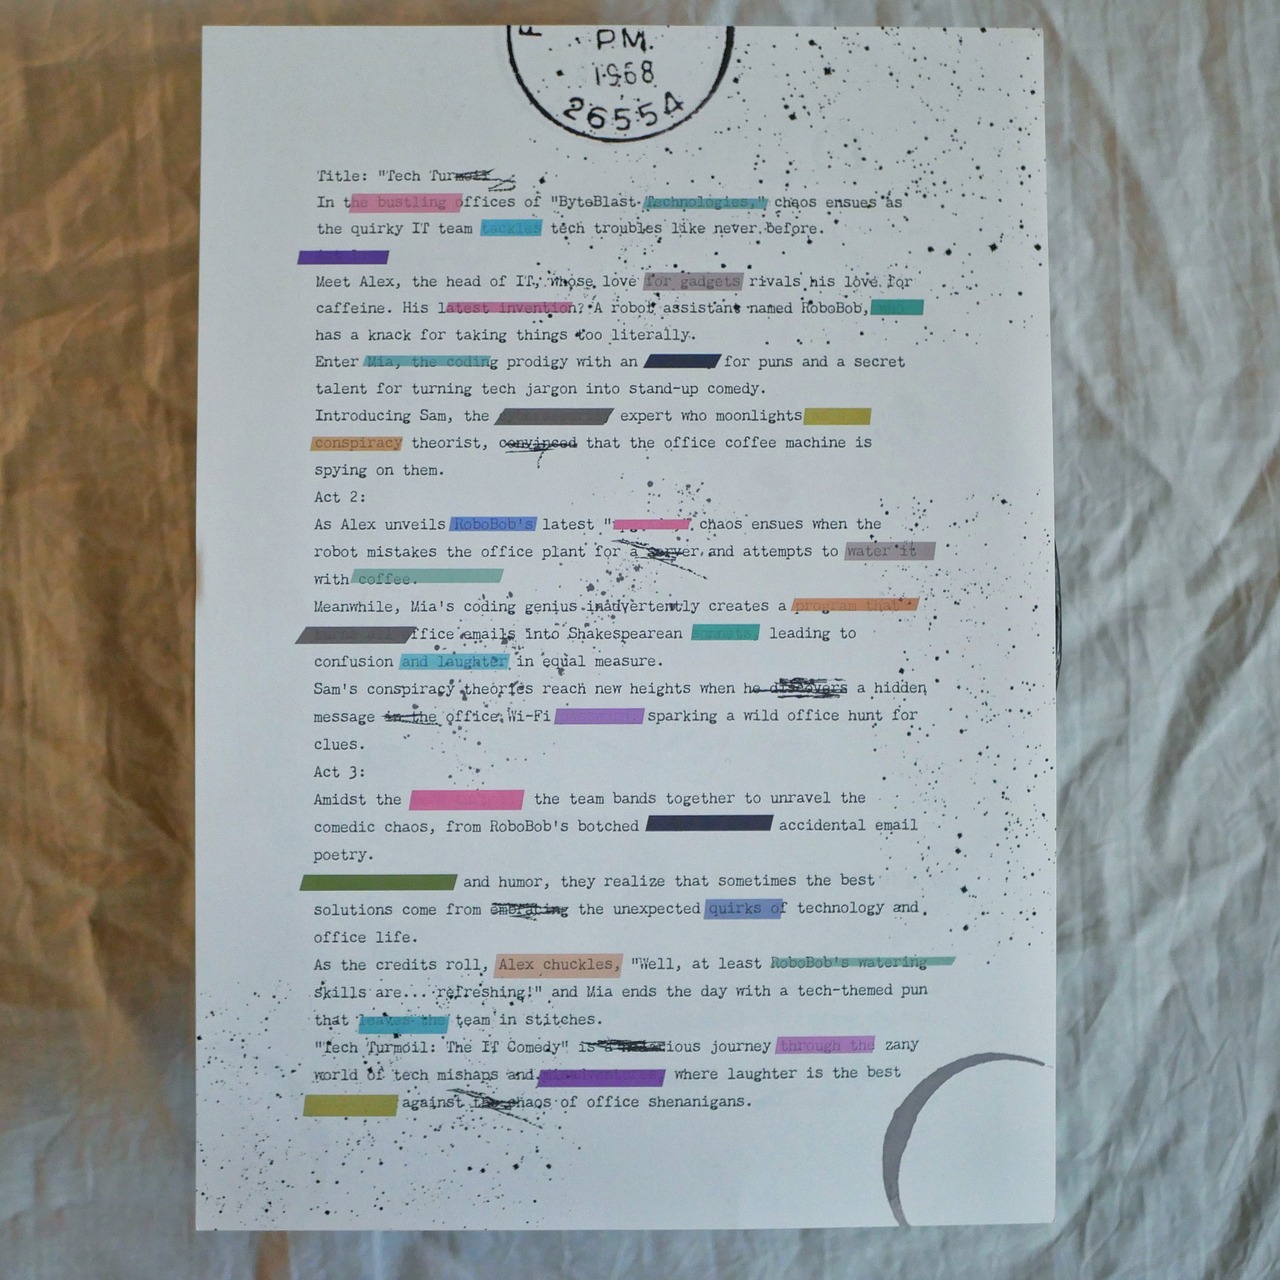 P.M.
1968
26554
Title: "Tech Turmoil
In the bustling offices of "ByteBlast Technologies," chaos ensues as
the quirky IT team tackles tech troubles like never before.
Meet Alex, the head of IT, whose love for gadgets rivals his love for
caffeine. His latest invention? A robot assistant named RoboBob, who
has a knack for taking things too literally.
Enter Mia, the coding prodigy with an for puns and a secret
talent for turning tech jargon into stand-up comedy.
Introducing Sam, the expert who moonlights
conspiracy theorist, convinced that the office coffee machine is
spying on them.
Act 2:
As Alex unveils RoboBob's latest " chaos ensues when the
robot mistakes the office plant for a server and attempts to water it
with coffee.
Meanwhile, Mia's coding genius inadvertently creates a program that
turns all office emails into Shakespearean sonnets, leading to
confusion and laughter in equal measure.
Sam's conspiracy theories reach new heights when he discovers a hidden
message in the office Wi-Fi sparking a wild office hunt for
clues.
Act 3:
Amidst the the team bands together to unravel the
comedic chaos, from RoboBob's botched accidental email
poetry.
and humor, they realize that sometimes the best
solutions come from embracing the unexpected quirks of technology and
office life.
As the credits roll, Alex chuckles, "Well, at least RoboBob's watering
skills are... refreshing!" and Mia ends the day with a tech-themed pun
that leaves the team in stitches.
"Tech Turmoil: The IT Comedy" is a journey through the zany
world of tech mishaps and misadventures, where laughter is the best
against the chaos of office shenanigans.